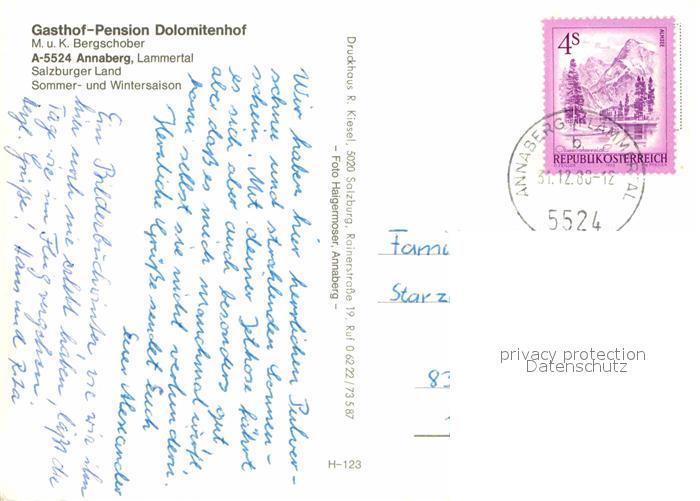 Gasthof-Pension Dolomitenhof
M. u. K. Bergschober
A-5524 Annaberg, Lammertal
Salzburger Land
Sommer- und Wintersaison
Wir haben hier herrlichen Pulver-
schnee und strahlenden Sonnen-
schein. Mit deiner Jethose fährt
es sich aber auch besonders gut
aber daß es mich manchmal wirft
kann selbst sie nicht verhindern.
Herzliche Grüße sendet Euch
Euer Alexander
Ein Bilderbuchwinter wie wir ihn
hier noch nie erlebt haben, läßt die
Tage wie im Flug vergehen.
Herzl. Grüße! Hans und Rita
Druckhaus R. Kiesel, 5020 Salzburg, Rainerstraße 19, Ruf 0 62 22 / 73 5 87
– Foto Haigermoser, Annaberg –
H-123
4S
ALMSEE
REPUBLIK ÖSTERREICH
ANNABERG LAMMERTAL
b
31.12.88-12
5524
Fami
Starz
83
privacy protection
Datenschutz